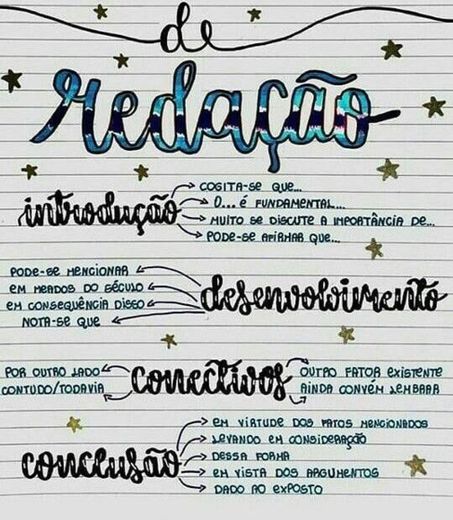 de
redação
introdução
COGITA-SE QUE...
O... É FUNDAMENTAL...
MUITO SE DISCUTE A IMPORTÂNCIA DE...
PODE-SE AFIRMAR QUE...
PODE-SE MENCIONAR
EM MEADOS DO SÉCULO
EM CONSEQUÊNCIA DISSO
NOTA-SE QUE
desenvolvimento
POR OUTRO LADO
CONTUDO/TODAVIA
conectivos
OUTRO FATOR EXISTENTE
AINDA CONVÉM LEMBRAR
conclusão
EM VIRTUDE DOS FATOS MENCIONADOS
LEVANDO EM CONSIDERAÇÃO
DESSA FORMA
EM VISTA DOS ARGUMENTOS
DADO AO EXPOSTO